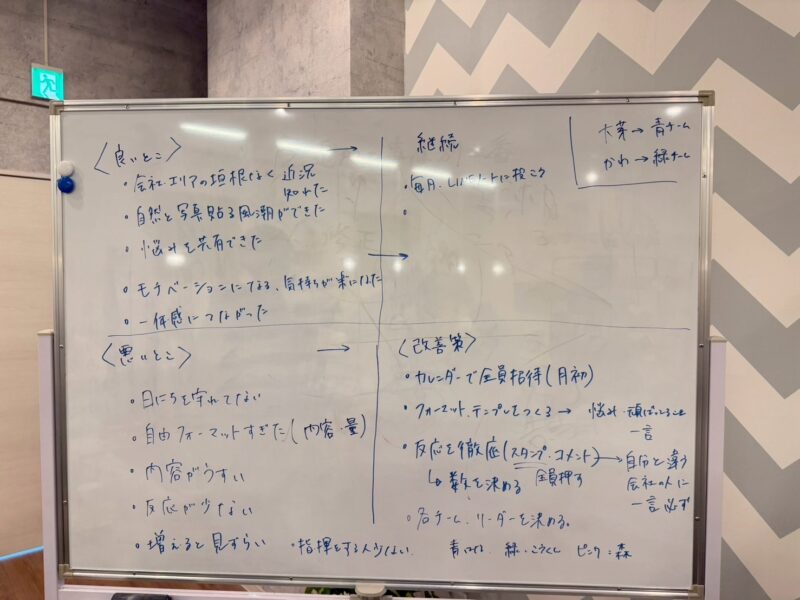 〈良いとこ〉 →
・会社、エリアの垣根なく近況
知れた
・自然と写真貼る風潮ができた
・悩みを共有できた
・モチベーションになる、気持ちが楽になった
・一体感につながった
継続
・毎月、
→
大芽→青チーム
かわ→緑チーム
〈悪いとこ〉 →
・日にちを守れてない
・自由フォーマットすぎた(内容・量)
・内容がうすい
・反応が少ない
・増えると見ずらい
・指揮とる人少ない
〈改善策〉
・カレンダーで全員招待(月初)
・フォーマット、テンプレをつくる → 悩み・頑ばってること
一言
・反応を徹底(スタンプ・コメント) → 自分と違う
会社の人に
一言必ず
↳ 数を決める 全員押す
・各チーム、リーダーを決める。
青: 緑: ピンク:森